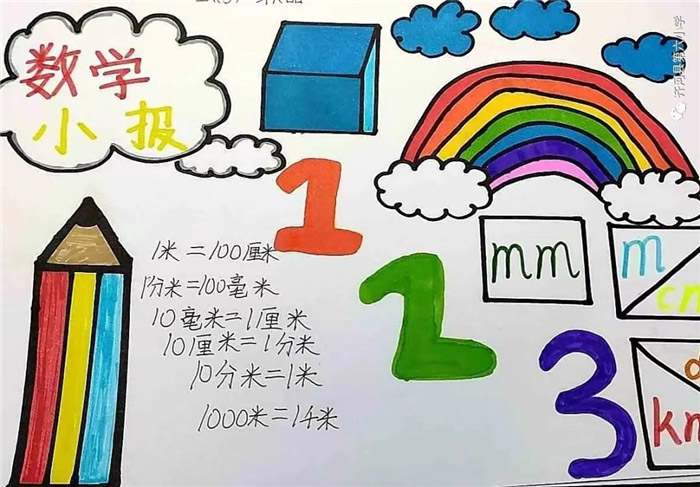 数学
小报
1米=100厘米
1分米=100毫米
10毫米=1厘米
10厘米=1分米
10分米=1米
1000米=1千米
1
2
3
mm
m
cm
km
齐河县第六小学